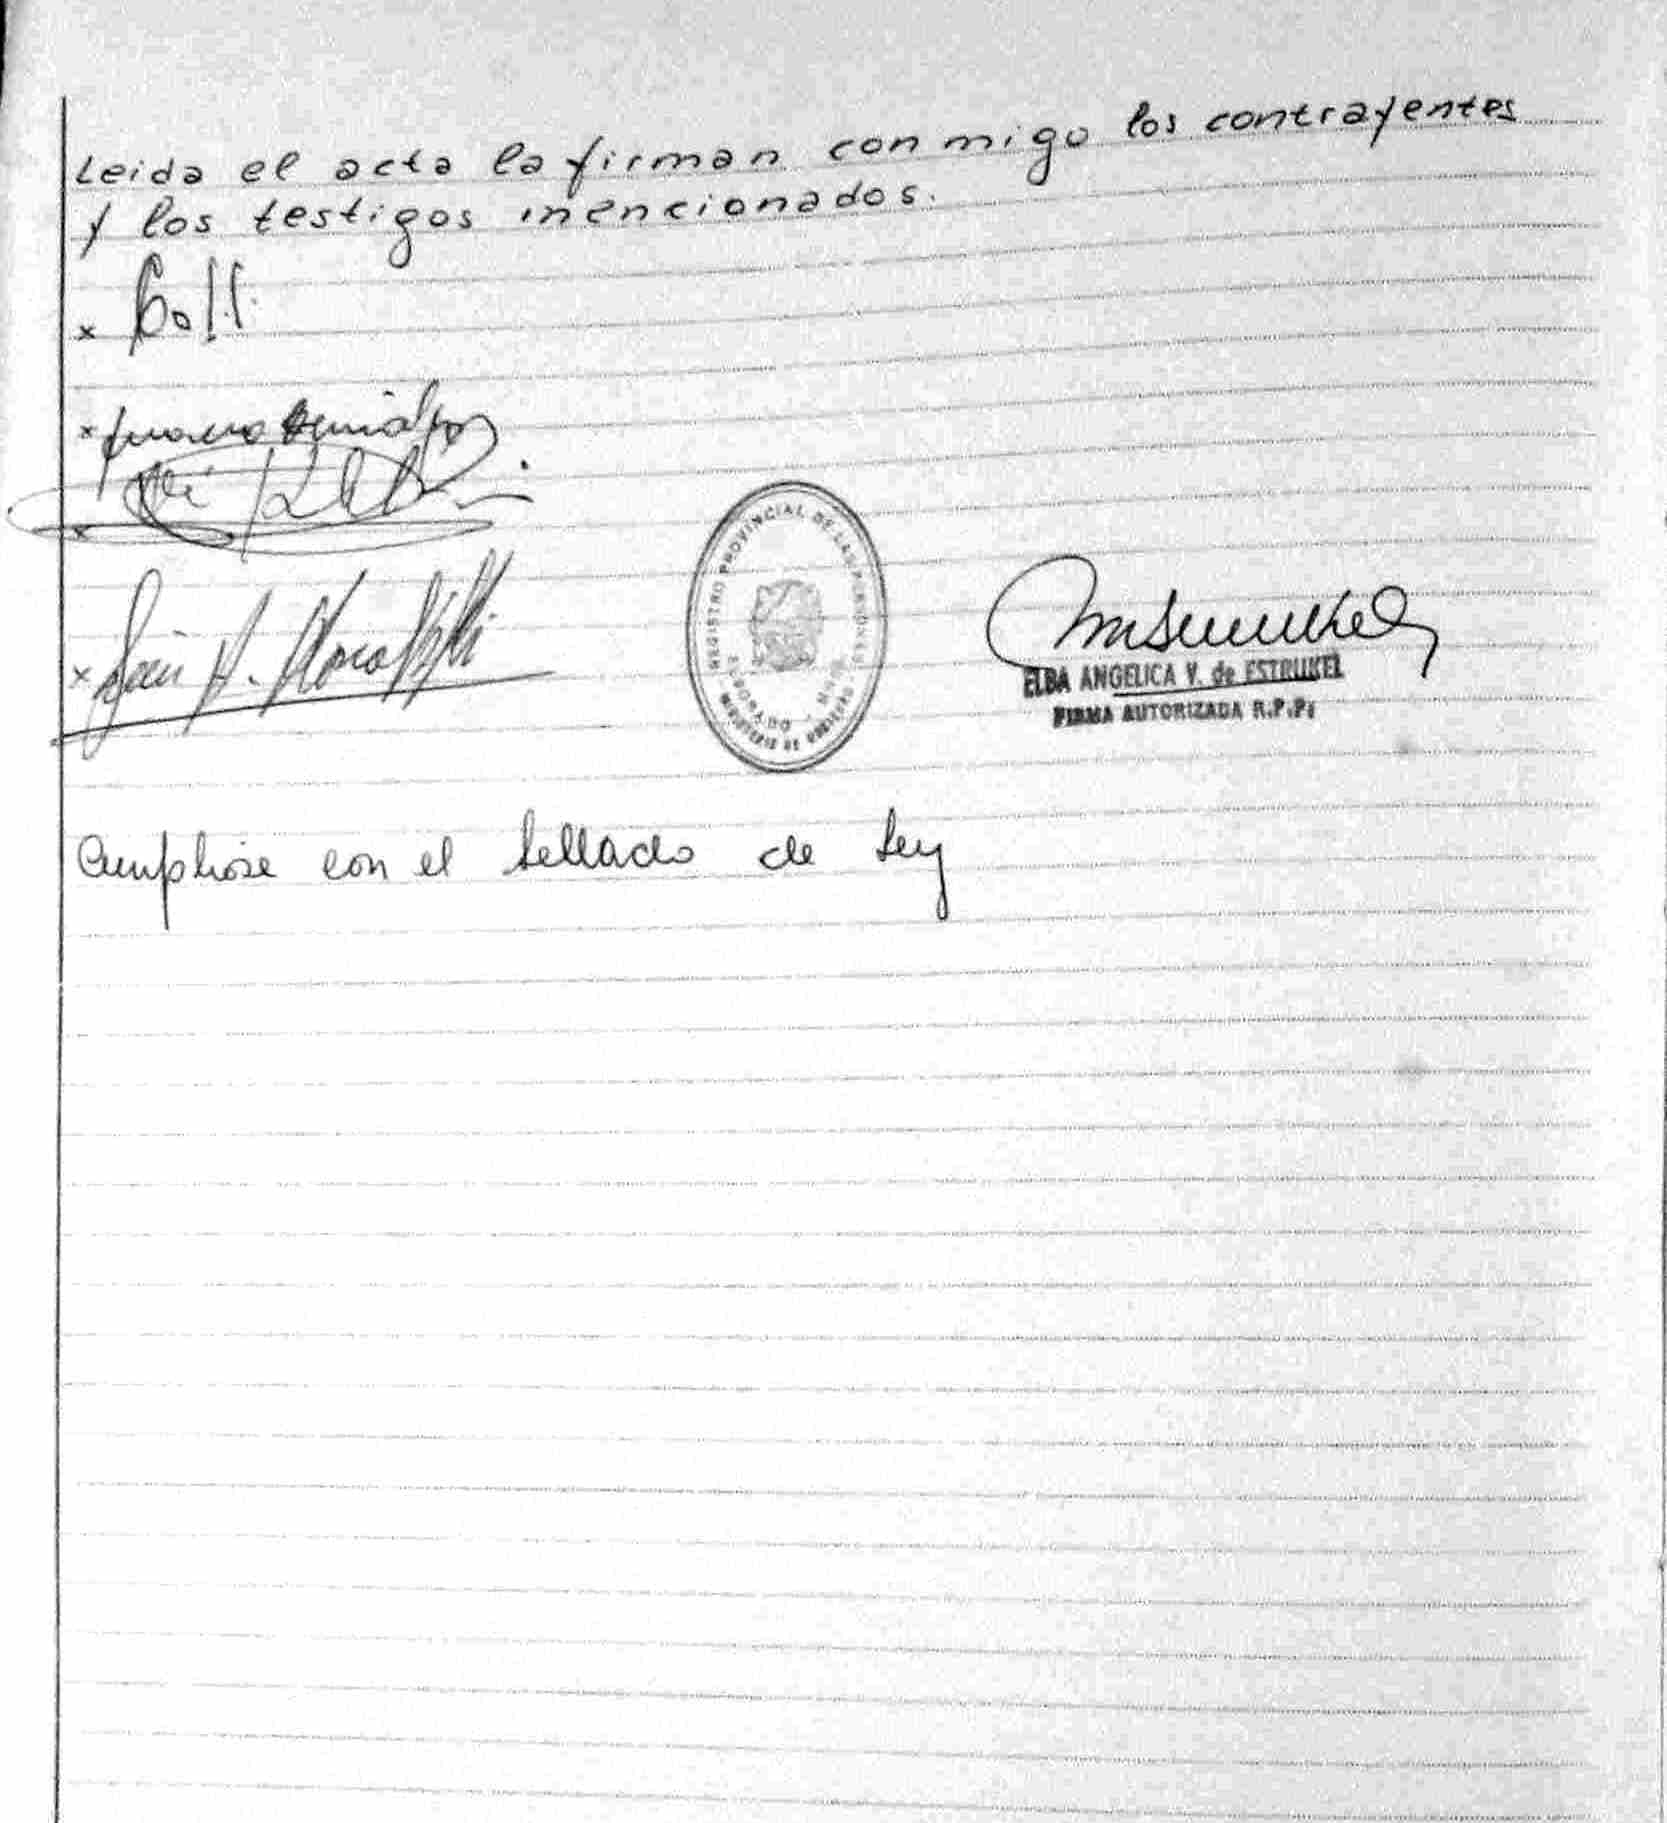 Leida el acta la firman con migo los contrayentes
y los testigos mencionados.
x
x
x
x
REGISTRO PROVINCIAL DE LAS PERSONAS
ELDORADO
MINISTERIO DE GOBIERNO
ELBA ANGELICA V. de ESTRUKEL
FIRMA AUTORIZADA R.P.P.
Cumpliose con el sellado de Ley